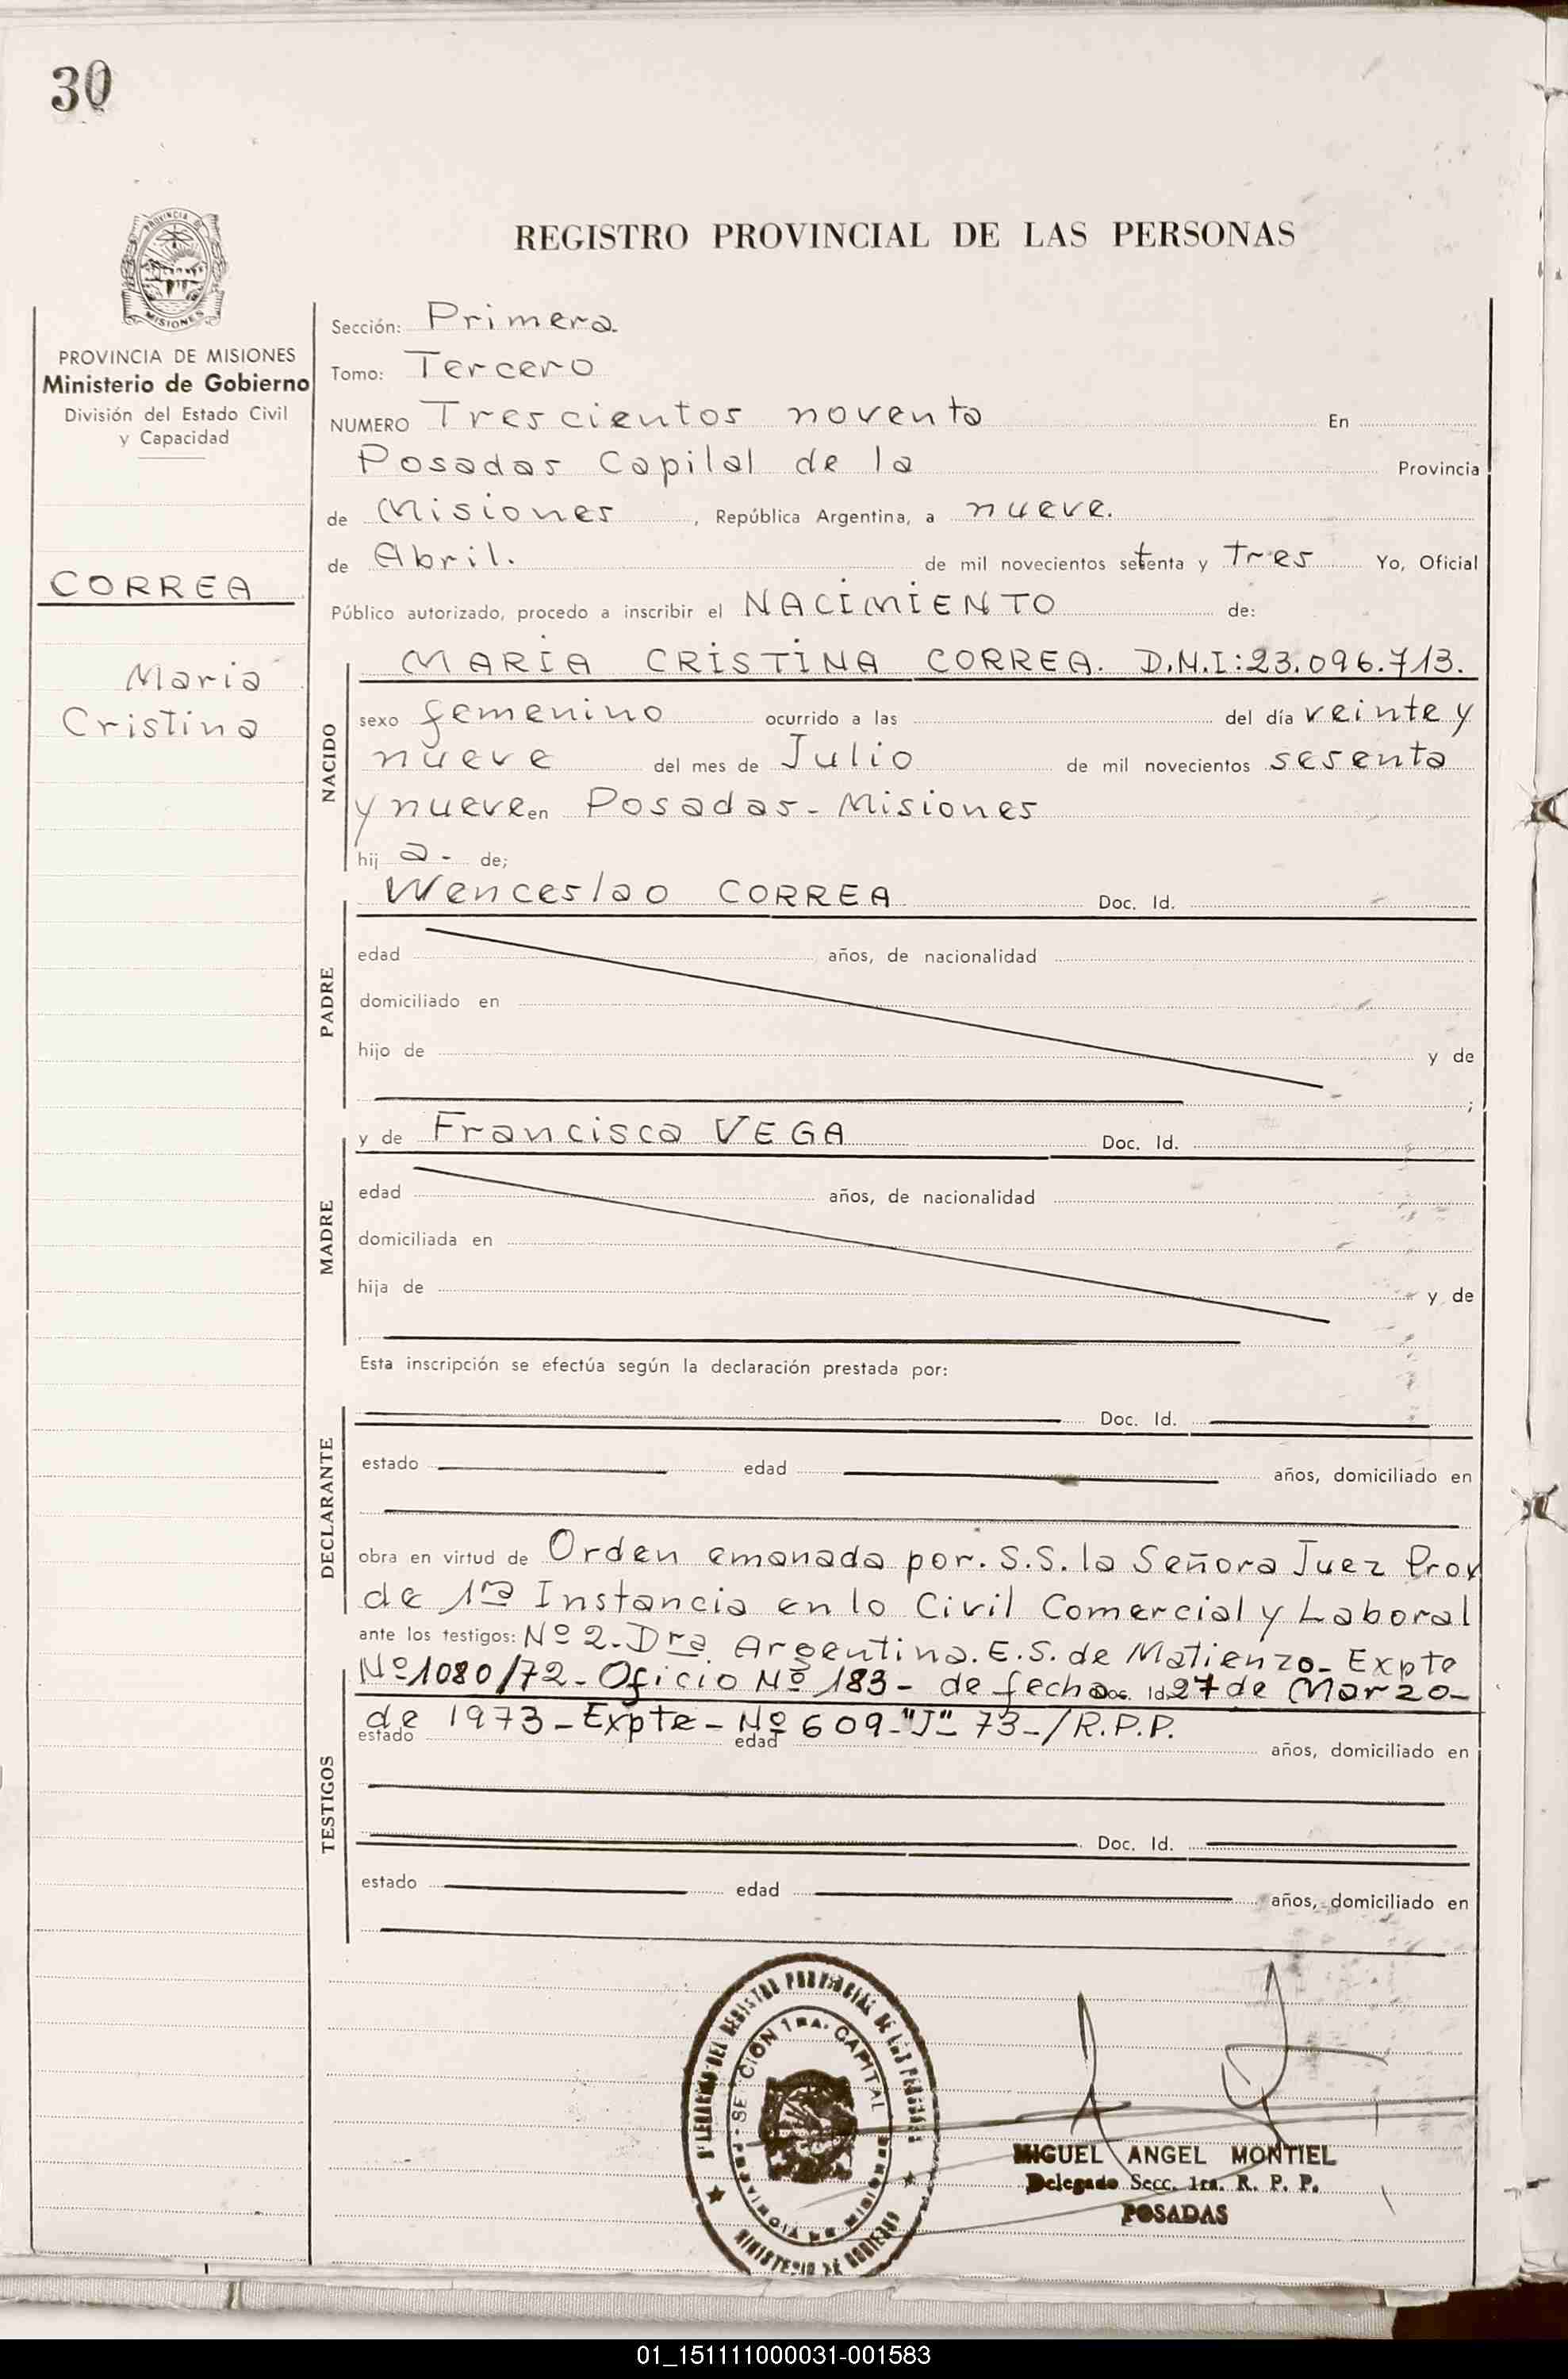 30
PROVINCIA DE
MISIONES
REGISTRO PROVINCIAL DE LAS PERSONAS
PROVINCIA DE MISIONES
Ministerio de Gobierno
División del Estado Civil
y Capacidad
CORREA
Maria
Cristina
Sección: Primera
Tomo: Tercero
NUMERO Trescientos noventa En
Posadas Capital de la Provincia
de Misiones, República Argentina, a nueve.
de Abril. de mil novecientos setenta y tres Yo, Oficial
Público autorizado, procedo a inscribir el NACIMIENTO de:
NACIDO
MARIA CRISTINA CORREA. D.N.I:23.096.713.
sexo femenino ocurrido a las del día veinte y
nueve del mes de Julio de mil novecientos sesenta
y nueve en Posadas - Misiones
hij a - de;
PADRE
Wenceslao CORREA Doc. Id.
edad años, de nacionalidad
domiciliado en
hijo de y de
;
MADRE
y de Francisca VEGA Doc. Id.
edad años, de nacionalidad
domiciliada en
hija de y de
Esta inscripción se efectúa según la declaración prestada por:
DECLARANTE
Doc. Id.
estado edad años, domiciliado en
obra en virtud de Orden emanada por. S.S. la Señora Juez Prov
de 1ra Instancia en lo Civil Comercial y Laboral
ante los testigos: Nº 2. Dra. Argentina. E.S. de Matienzo - Expte
Nº 1080/72 - Oficio Nº 183 - de fecha Doc. Id. 27 de Marzo -
de 1973 - Expte - Nº 609 - "J" - 73 - / R.P.P.
estado edad años, domiciliado en
TESTIGOS
Doc. Id.
estado edad años, domiciliado en
DEL REGISTRO PROVINCIAL DE LAS PERSONAS
SECCION 1RA. CAPITAL
PROVINCIA DE MISIONES
MINISTERIO DE GOBIERNO
MIGUEL ANGEL MONTIEL
Delegado Secc. 1ra. R. P. P.
POSADAS
01_151111000031-001583